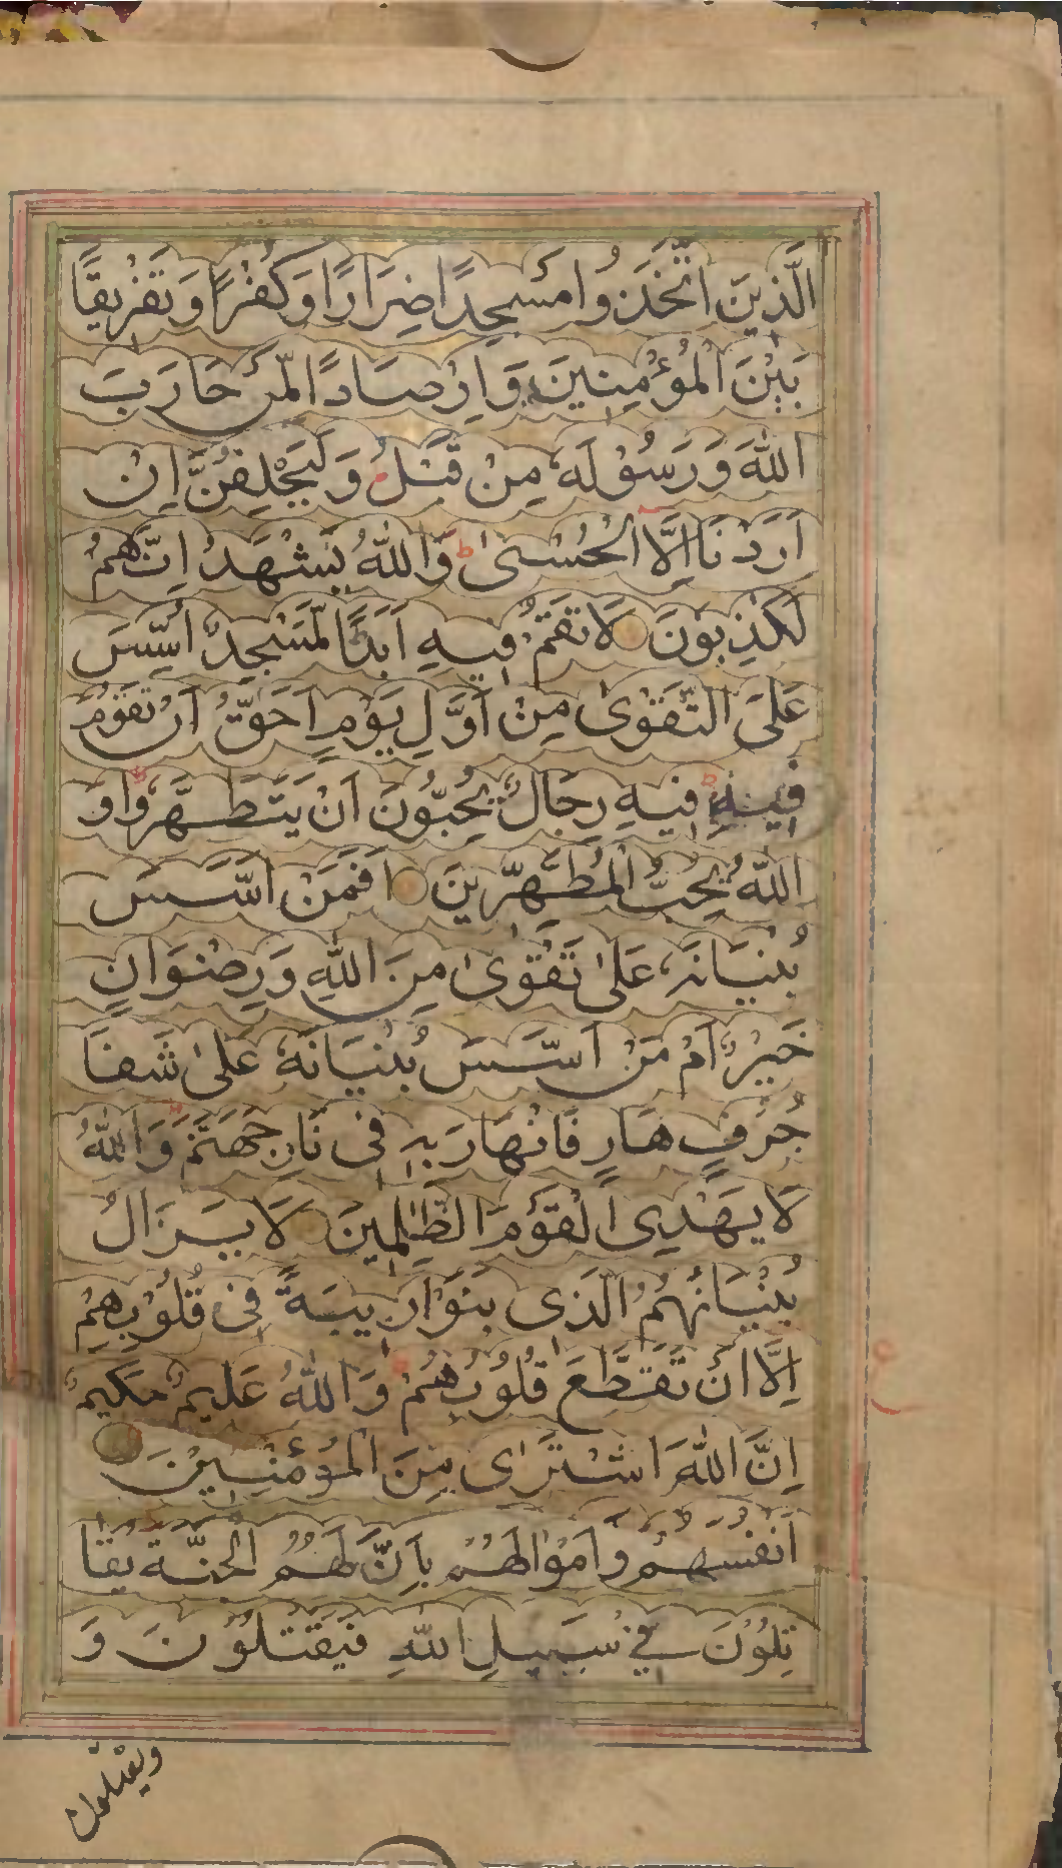 الَّذِينَ اتَّخَذُوا مَسْجِدًا ضِرَارًا وَكُفْرًا وَتَفْرِيقًا
بَيْنَ الْمُؤْمِنِينَ وَاِرْصَادًا لِّمَنْ حَارَبَ
اللّٰهَ وَرَسُوْلَهٗ مِنْ قَبْلُ وَلَيَحْلِفُنَّ اِنْ
اَرَدْنَا اِلَّا الْحُسْنٰى ط وَاللّٰهُ يَشْهَدُ اِنَّهُمْ
لَكٰذِبُونَ لَا تَقُمْ فِيهِ اَبَدًا لَّمَسْجِدٌ اُسِّسَ
عَلَى التَّقْوٰى مِنْ اَوَّلِ يَوْمٍ اَحَقُّ اَنْ تَقُوْمَ
فِيْهِ ط فِيهِ رِجَالٌ يُّحِبُّونَ اَنْ يَّتَطَهَّرُوْا ط وَ
اللّٰهُ يُحِبُّ الْمُطَّهِّرِينَ اَفَمَنْ اَسَّسَ
بُنْيَانَهٗ عَلٰى تَقْوٰى مِنَ اللّٰهِ وَرِضْوَانٍ
خَيْرٌ اَمْ مَّنْ اَسَّسَ بُنْيَانَهٗ عَلٰى شَفَا
جُرُفٍ هَارٍ فَانْهَارَ بِهٖ فِى نَارِ جَهَنَّمَ ط وَاللّٰهُ
لَا يَهْدِى الْقَوْمَ الظّٰلِمِينَ لَا يَزَالُ
بُنْيَانُهُمُ الَّذِى بَنَوْا رِيبَةً فِى قُلُوْبِهِمْ
اِلَّا اَنْ تَقَطَّعَ قُلُوْبُهُمْ ط وَاللّٰهُ عَلِيمٌ حَكِيمٌ
ع
اِنَّ اللّٰهَ اشْتَرٰى مِنَ الْمُؤْمِنِيْنَ
اَنْفُسَهُمْ وَاَمْوَالَهُمْ بِاَنَّ لَهُمُ الْجَنَّةَ يُقَا
تِلُوْنَ فِي سَبِيلِ اللّٰهِ فَيَقْتُلُوْنَ وَ
ويقتلون